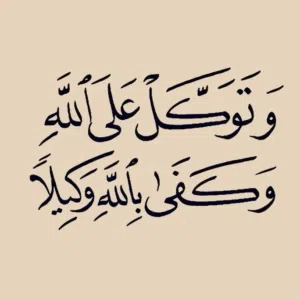 وَتَوَكَّلْ عَلَى ٱللَّهِ
وَكَفَىٰ بِٱللَّهِ وَكِيلًا